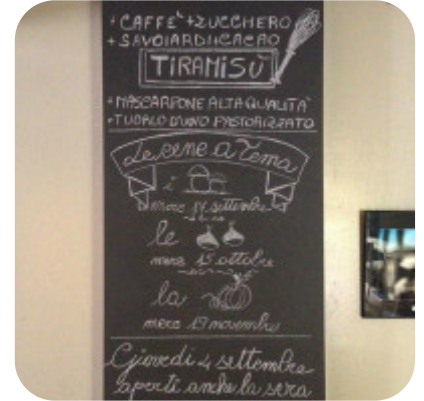 + CAFFE' + ZUCCHERO
+ SAVOIARDI + CACAO
TIRAMISÙ
+ MASCARPONE ALTA QUALITÀ
+ TUORLO D'UOVO PASTORIZZATO
Le cene a Tema
i
settembre
le
merc 15 ottobre
la
merc 19 novembre
Giovedì 4 settembre
aperti anche la sera